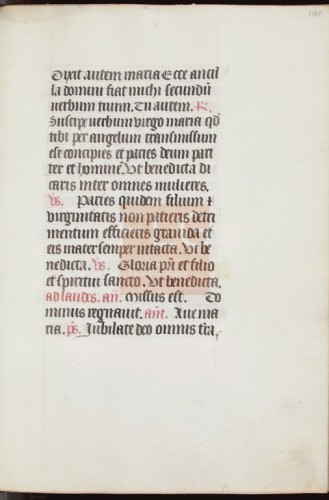 Dixit autem maria Ecce ancil
la domini fiat michi secundū
verbum tuum. Tu autem. R.
Suscipe verbum virgo maria qd̄
tibi per angelum transmissum
est concipies et paries deum pari
ter et hominē. Ut benedicta di
caris inter omnes mulieres.
vs. Paries quidem filium &
virginitatis non patieris detri
mentum efficieris gravida et
eris mater semper intacta. Ut be
nedicta. vs. Gloria pr̄i et filio
et spiritui sancto. Ut benedicta.
ad laudes. an̄. Missus est. Do
minus regnavit. ant̄. Ave ma
ria. ps̄. Iubilate deo omnis tr̄a.